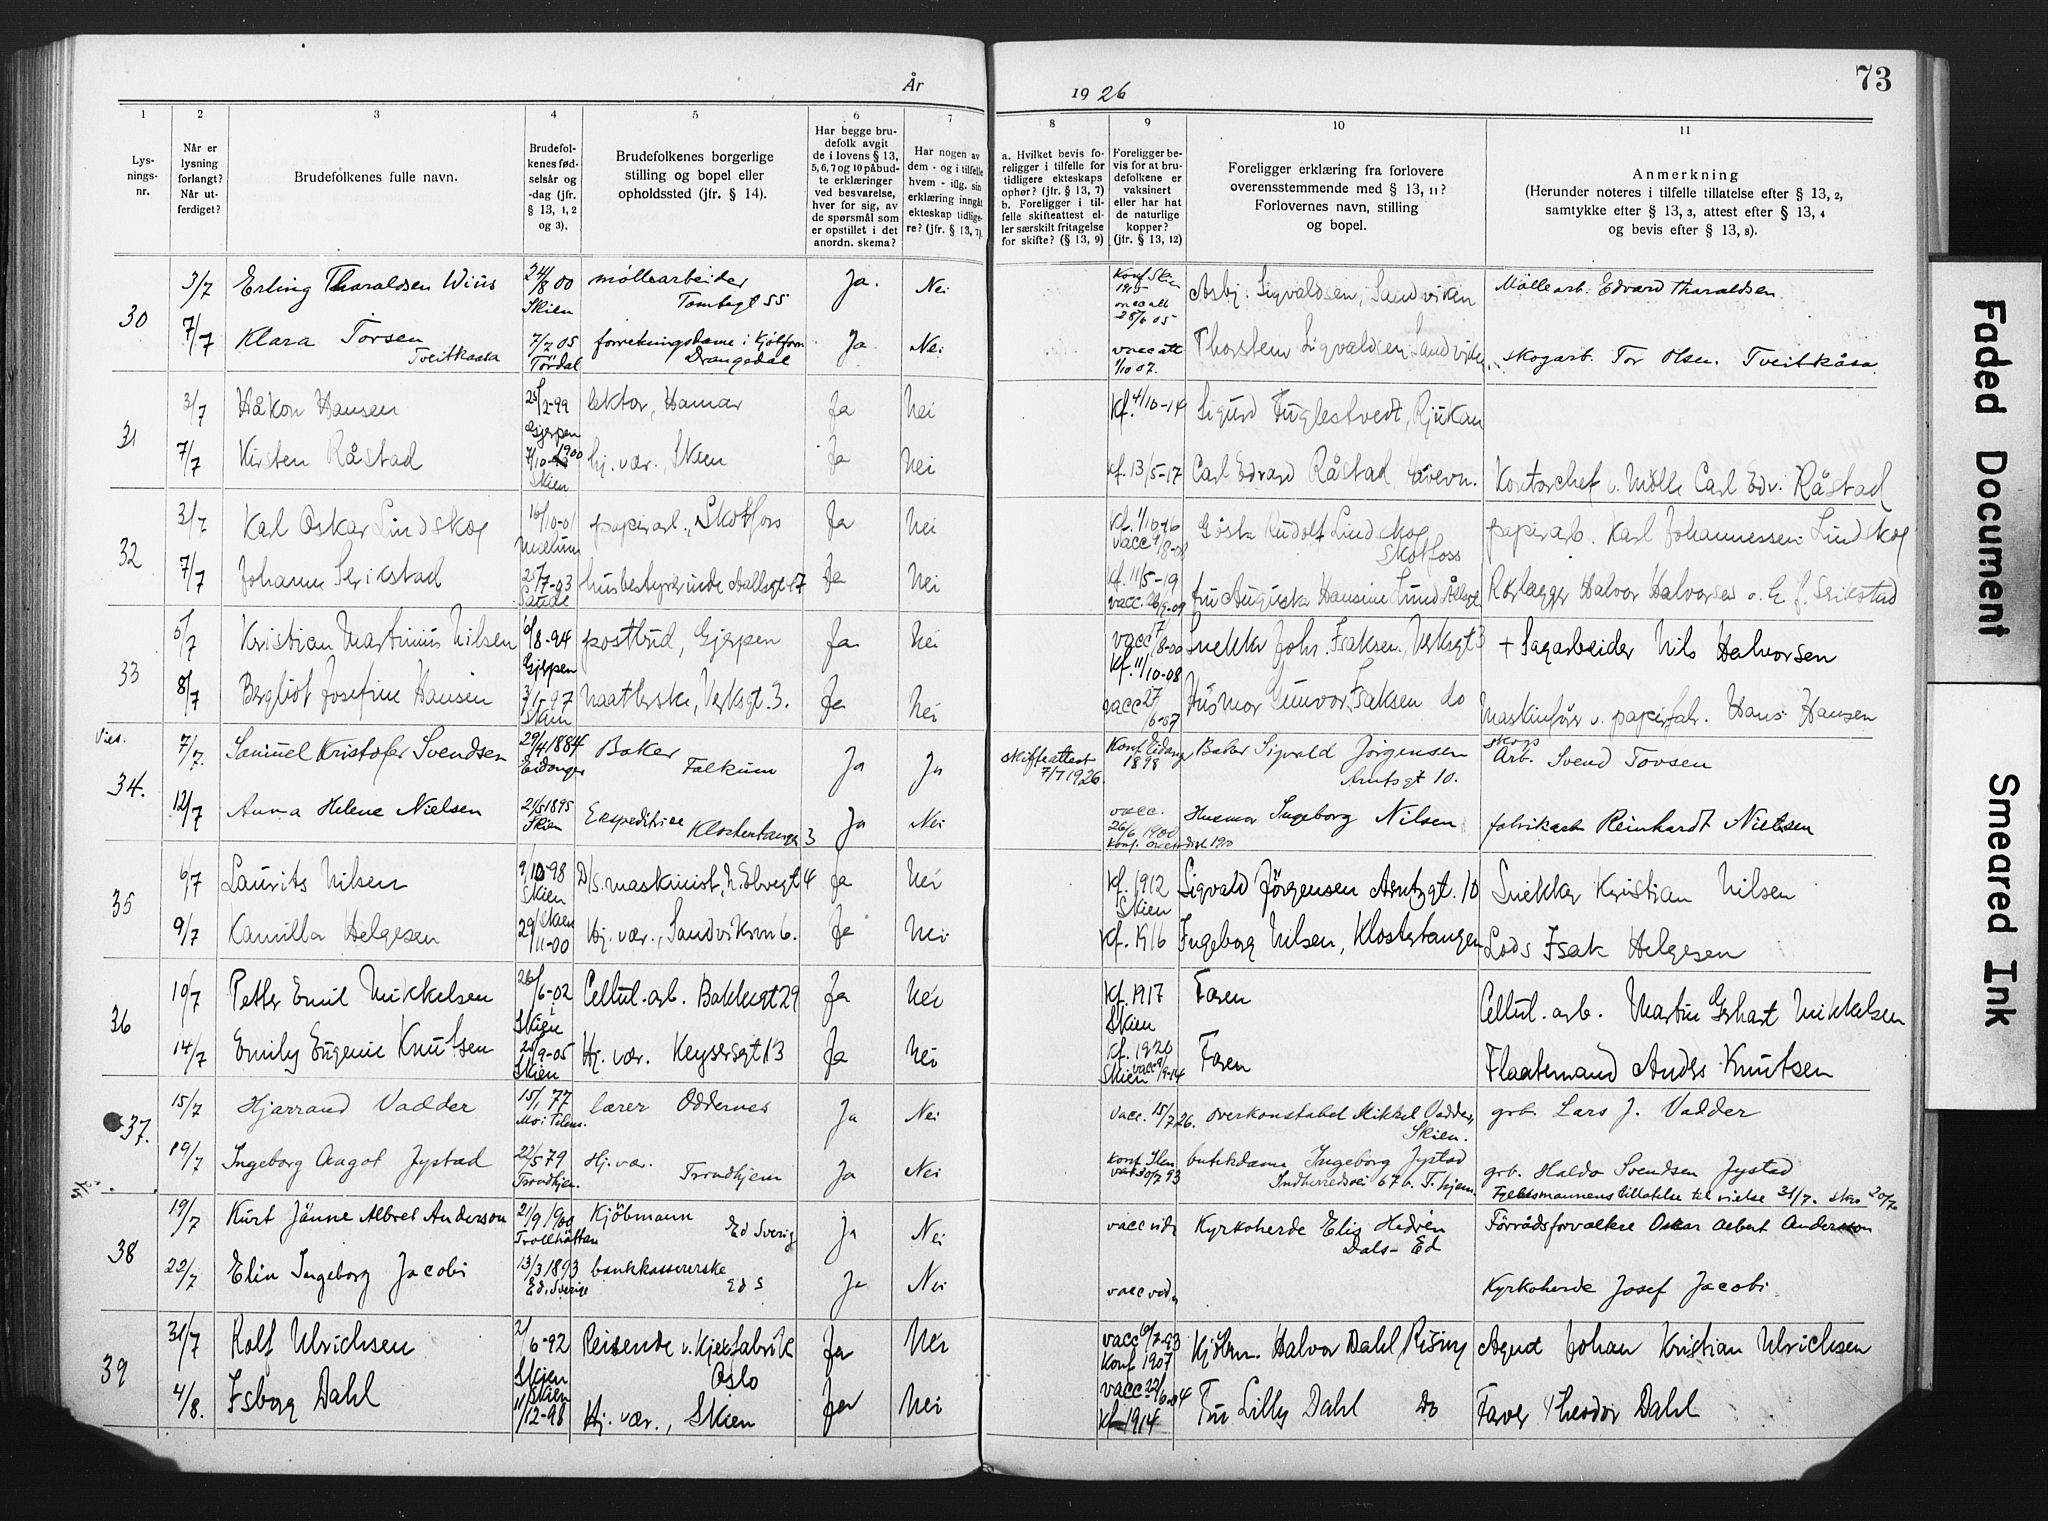 År 1926
73
1 2 3 4 5 6 7 8 9 10 11
Lysningsnr.
Når er lysning forlangt? Når utferdiget?
Brudefolkenes fulle navn.
Brudefolkenes fødselsår og -dag (jfr. § 13, 1, 2 og 3).
Brudefolkenes borgerlige stilling og bopel eller opholdssted (jfr. § 14).
Har begge brudefolk avgit de i lovens § 13, 5, 6, 7 og 10 påbudte erklæringer ved besvarelse, hver for sig, av de spørsmål som er opstillet i det anordn. skema?
Har nogen av dem - og i tilfelle hvem - iflg. sin erklæring inngått ekteskap tidligere? (jfr. § 13, 7).
a. Hvilket bevis foreligger i tilfelle for tidligere ekteskaps ophør? (jfr. § 13, 7)
b. Foreligger i tilfelle skifteattest eller særskilt fritagelse for skifte? (§ 13, 9)
Foreligger bevis for at brudefolkene er vaksinert eller har hat de naturlige kopper? (jfr. § 13, 12)
Foreligger erklæring fra forlovere overensstemmende med § 13, 11? Forlovernes navn, stilling og bopel.
Anmerkning
(Herunder noteres i tilfelle tillatelse efter § 13, 2, samtykke efter § 13, 3, attest efter § 13, 4 og bevis efter § 13, 8).
30 3/7 Erling Tharaldsen Wius 24/8 00 Skien møllearbeider Tomtegt 55 Ja. Nei Konf. Skien 1915 28/6 05 Asbj. Sigvaldsen, Sandviken Møllearb. Edvard Tharaldsen
7/7 Klara Torsen Tveitkaasa 7/2 05 Tørdal forretningsdame i Kjølforr. Drangedal Ja Nei vacc att 1/10 07. Thorstein Sigvaldsen Sandviken skogarb. Tor Olsen. Tveitkåsa
31 3/7 Håkon Hansen 25/2-99 Gjerpen lektor, Hamar Ja Nei kf. 4/10-14 Sigurd Fuglestvedt, Rjukan
7/7 Kirsten Råstad 7/10-1900 Skien hj. vær., Skien Ja Nei kf. 13/5-17 Carl Edvard Råstad Kontorchef v. Mølle Carl Edv. Råstad
32 3/7 Karl Oskar Lindskog 10/10-01 Melum papirarb., Skotfoss Ja Nei kf. 1/10-16 vacc 9/8-08 Gösta Rudolf Lindskog Skotfoss papirarb. Karl Johannessen Lindskog
7/7 Johanne Serikstad 25/7-03 Sande husbestyrerinde Ja Nei kf. 11/5-19 vacc. 26/9-09 fru Augusta Hansine Lund Rørlægger Halvor Halvorsen o. E. f. Serikstad
33 5/7 Kristian Martinius Nilsen 10/8-94 Gjerpen postbud, Gjerpen Ja Nei vacc 17/8-00 kf. 11/10-08 Snekker Joh. Isaksen, Verksgt 3 + Sagarbeider Nils Halvorsen
8/7 Bergliot Josefine Hansen 3/1-97 Skien Naatlerske, Verksgt. 3. Ja Nei vacc 27/6-07 Husmor Gunvor Isaksen do Maskinfører v. papirfabr. Hans Hansen
Viet.
34. 7/7. Samuel Kristofer Svendsen 29/4 1884 Eidanger Baker Falkum Ja Ja skifteattest 7/7 1926. Konf Eidanger 1898 Baker Sigvald Jörgensen Arntsgt 10. skogs Arb. Svend Tovsen
12/7 Anna Helene Nielsen 21/5 1895 Skien Ekspeditrice Klostertangen 3 Ja Nei vacc. 26/6 1900 Konf. 1910 Husmor Ingeborg Nilsen fabrikarb Reinhardt Nielsen
35 6/7 Laurits Nilsen 9/10-98 Skien D/S. maskinist, N. Elvegt 4 Ja Nei kf. 1912 Skien Sigvald Jörgensen Arntzgt. 10 Snekker Kristian Nilsen
9/7 Kamilla Helgesen 29/11-00 Skien Hj. vær., Sandvikvn 6. Ja Nei kf. 1916 Ingeborg Nilsen, Klostertangen Lods Isak Helgesen
36 10/7 Petter Emil Mikkelsen 26/6-02 Skien Cellul. arb. Bakkegt 29 Ja Nei kf. 1917 Skien Faren Cellul. arb. Martin Gerhart Mikkelsen
14/7 Emily Eugenie Knutsen 25/9-05 Skien Hj. vær. Keysersgt 13 Ja Nei kf. 1920 Skien vacc 9/9-14 Faren Flaatemand Anders Knutsen
37. 15/7 Hjarrand Vadder 15/1 77 Mo i Telem. lærer Oddernes Ja Nei vacc. 15/7 26. Overkonstabel Mikkel Vadder, Skien. grb. Lars J. Vadder
19/7 Ingeborg Aagot Jystad 22/5 79 Trondhjem. Hj. vær. Trondhjem Ja Nei Konf. 93 butikdame Ingeborg Jystad Indherredsvei 67 b. T.hjem. grb. Haldo Svendsen Jystad
Fylkesmannens tillatelse til vielse 31/7. skr. 20/7.
38 19/7 Kurt Jänne Albret Anderson 21/9 1900 Trollhättan Kjöbmann Ed Sverig Ja Nei vacc vidn Kyrkoherde Elis Hedrén Dals-Ed Förrådsforvalter Oskar Albert Anderson
22/7 Elin Ingeborg Jacobi 13/3 1893 Ed. Sverige bankkassererske Ed S Ja Nei vacc vidn Kyrkoherde Josef Jacobi
39 31/7 Rolf Ulrichsen 2/6-92 Skien Reisende v. Kjeksfabrik Oslo Ja Nei vacc 6/7-93 Konf 1907 Kjøbm. Halvor Dahl Rising Agent Johan Kristian Ulrichsen
4/8. Isborg Dahl 11/12-98 Skien Hj. vær., Skien Ja Nei vacc 22/6-04 kf 1914 Fru Lilly Dahl Do Farver Theodor Dahl
Faded Document
Smeared Ink